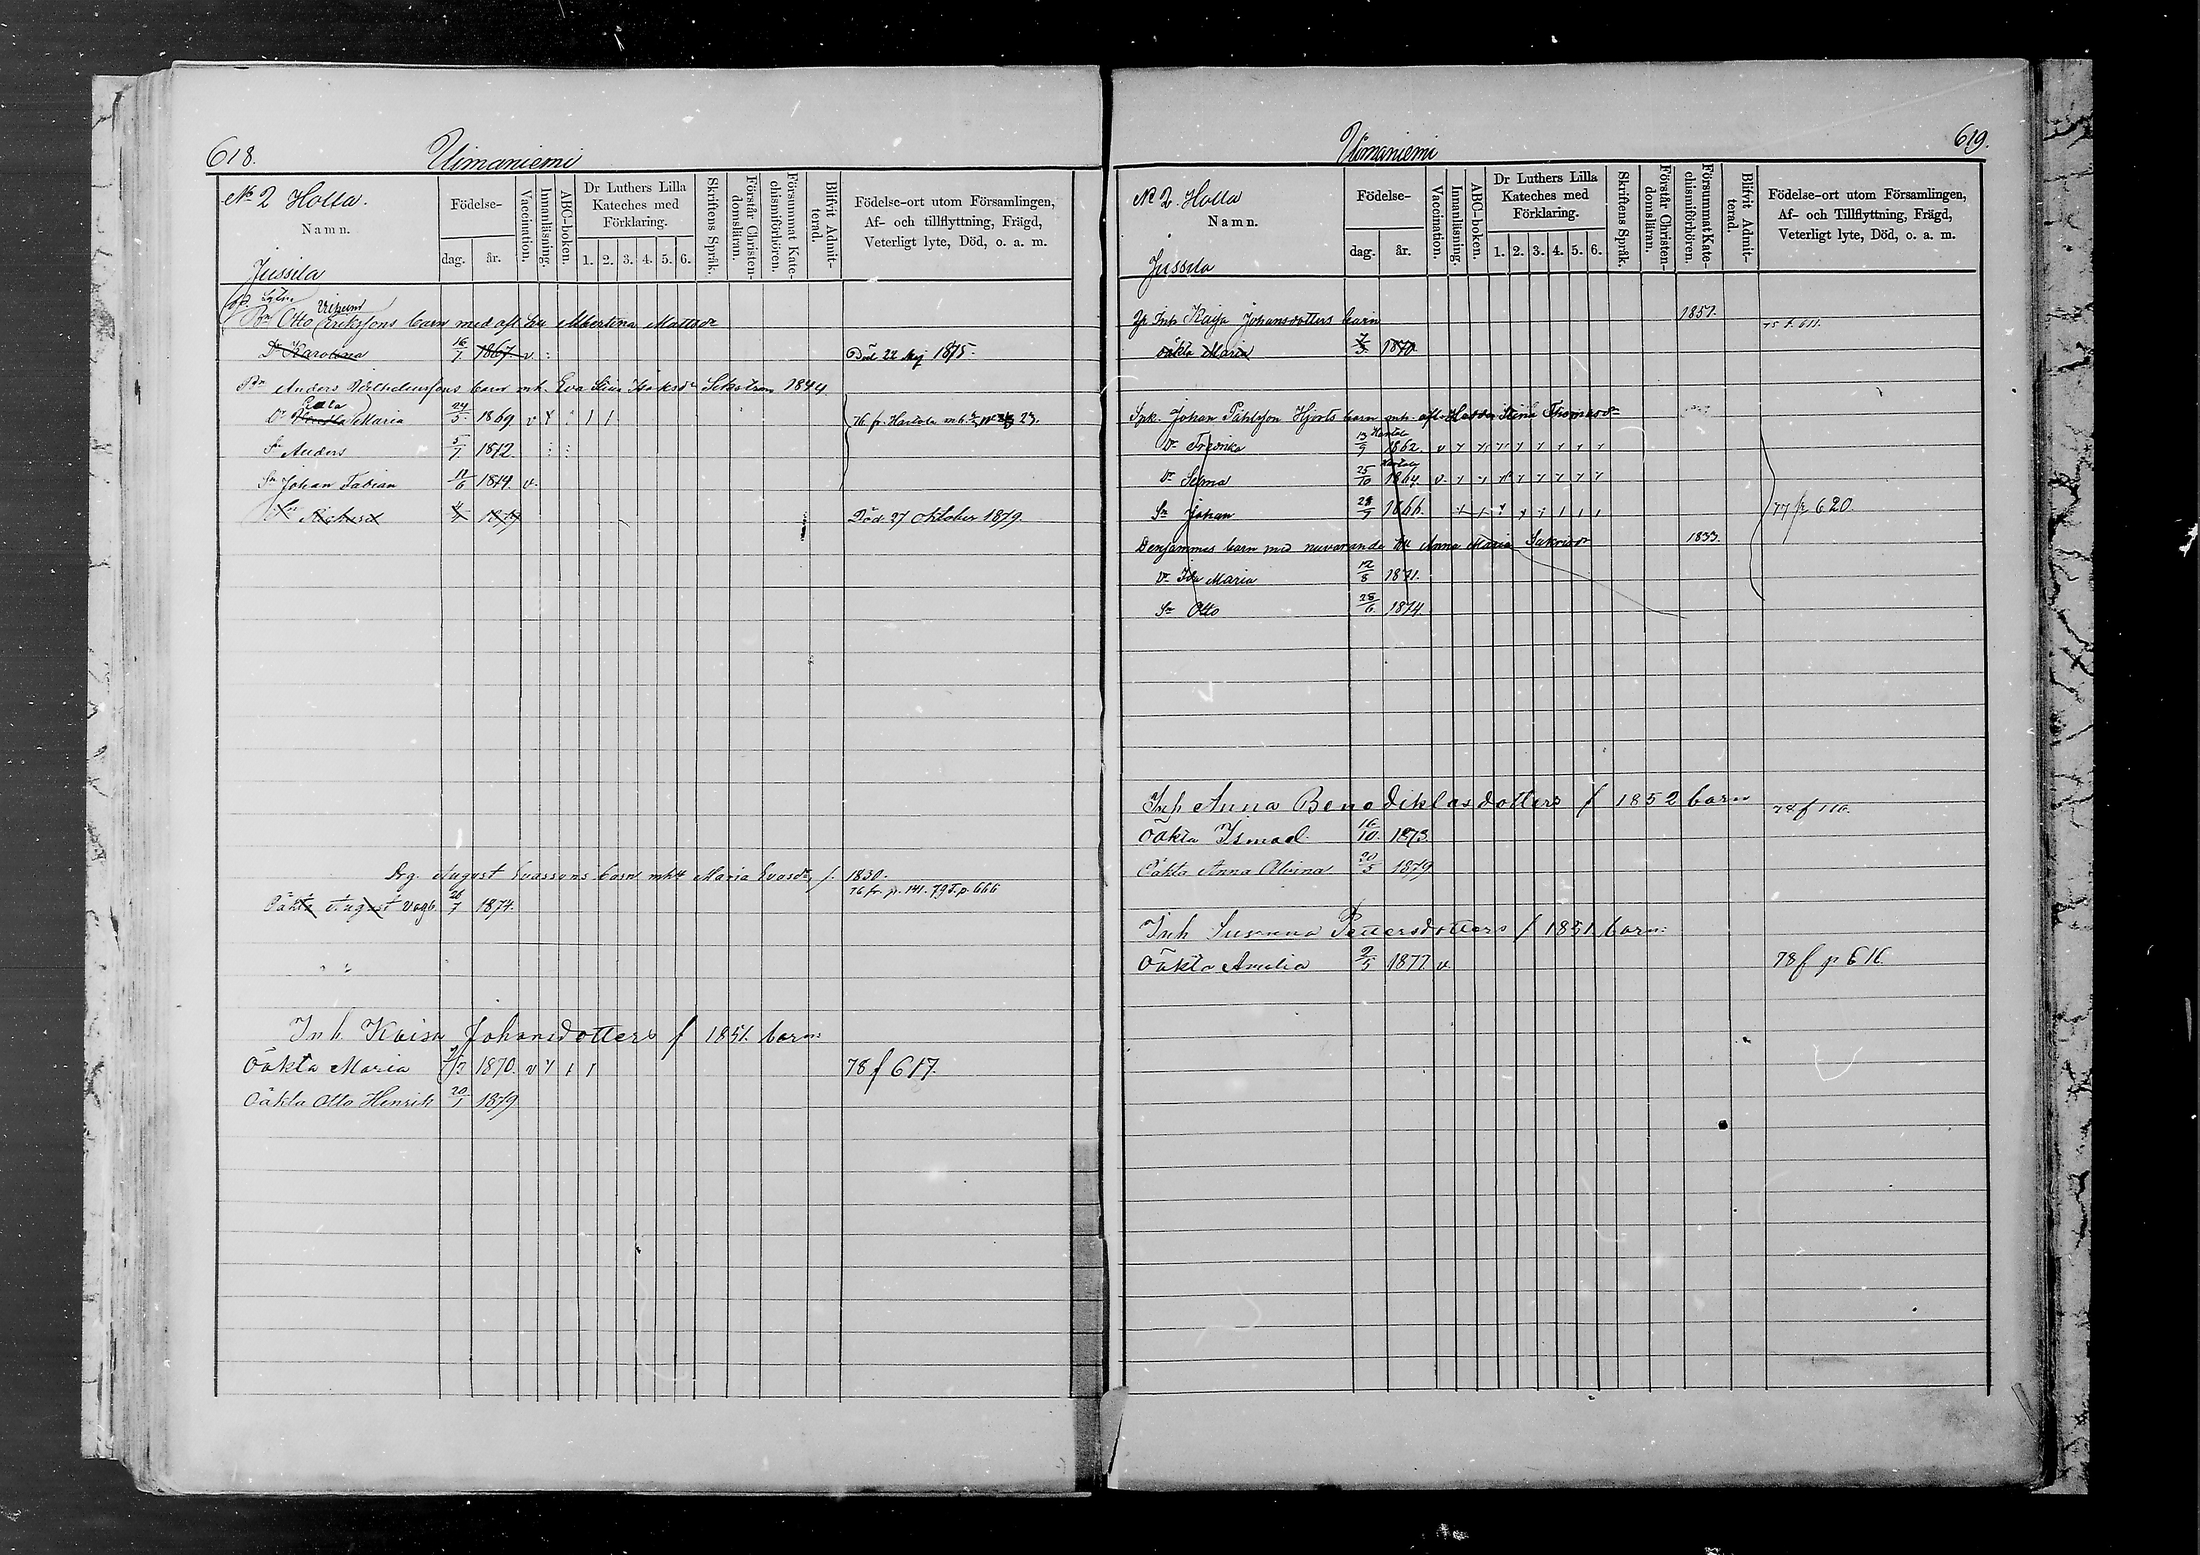 618.
Uimaniemi
No 2 Holla.
Namn.
Jussila
Födelse-
dag.
år.
Vaccination.
Innanläsning.
ABC-boken.
Dr Luthers Lilla
Kateches med
Förklaring.
1. 2. 3. 4. 5. 6.
Skriftens Språk.
Förstår Christen-
domsläran.
Försummat Kate-
chismiförhören.
Blifvit Admit-
terad.
Födelse-ort utom Församlingen,
Af- och tillflyttning, Frägd,
Veterligt lyte, Död, o. a. m.
Otto Erikssons barn med afl. hu Albertina Mattsdr
Dr Karolina 16/7 1867 v Död 22 Maj 1875.
Bn Anders Wilhelmssons barn mh. Eva Stina 1844.
Dr Maria 24/5 1869 v 76 fr. Hartola
Sn Anders 5/7 1872
Sn Johan Fabian 12/6 1874. v.
Sn Richard 1879 Död 27 Oktober 1879.
Drg. August Evassons barn mhu Maria Evasdr f. 1830.
76 fr. p. 141. 79 t. p. 666
Oäkta August 26/7 1874.
Inh. Kaisa Johansdotters f 1851. barn:
Oäkta Maria 1870. v 78 f 617.
Oäkta Otto Henrik 20/1 1879
619.
Uimaniemi
No 2. Holla
Namn.
Jussila
Födelse-
dag.
år.
Vaccination.
Innanläsning.
ABC-boken.
Dr Luthers Lilla
Kateches med
Förklaring.
1. 2. 3. 4. 5. 6.
Skriftens Språk.
Förstår Christen-
domsläran.
Försummat Kate-
chismiförhören.
Blifvit Admit-
terad.
Födelse-ort utom Församlingen,
Af- och Tillflyttning, Frägd,
Veterligt lyte, Död, o. a. m.
Inh Kaija Johansdotters barn 1851. 75 t. 611.
oäkta Maria 1870.
Johan Påhlsson Hjorts barn mh. Stina Thomasdr
Dr Fredrika 13/9 1862. v
Dr Selma 25/10 1864. v
Sn Johan 1866. 77 p 620.
Densammes barn med nuvarande hu Anna Maria 1833.
Dr Ida Maria 12/8 1871.
Sn Otto 28/6 1874.
Inh Anna Benediktasdotters f 1852 barn
Oäkta Ismael 16/10. 1873
Oäkta Anna Alvina 20/5 1879
Inh Susanna Pettersdotters f 1851 barn:
Oäkta Amalia 2/5 1877 v